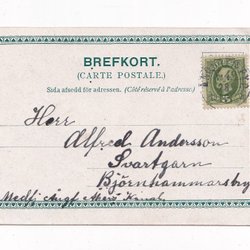 BREFKORT.
(CARTE POSTALE.)
Sida afsedd för adressen. (Côté réservé à l'adresse.)
Herr
Alfred Andersson
Svartgarn
Björnhammarsbryg
Kanal